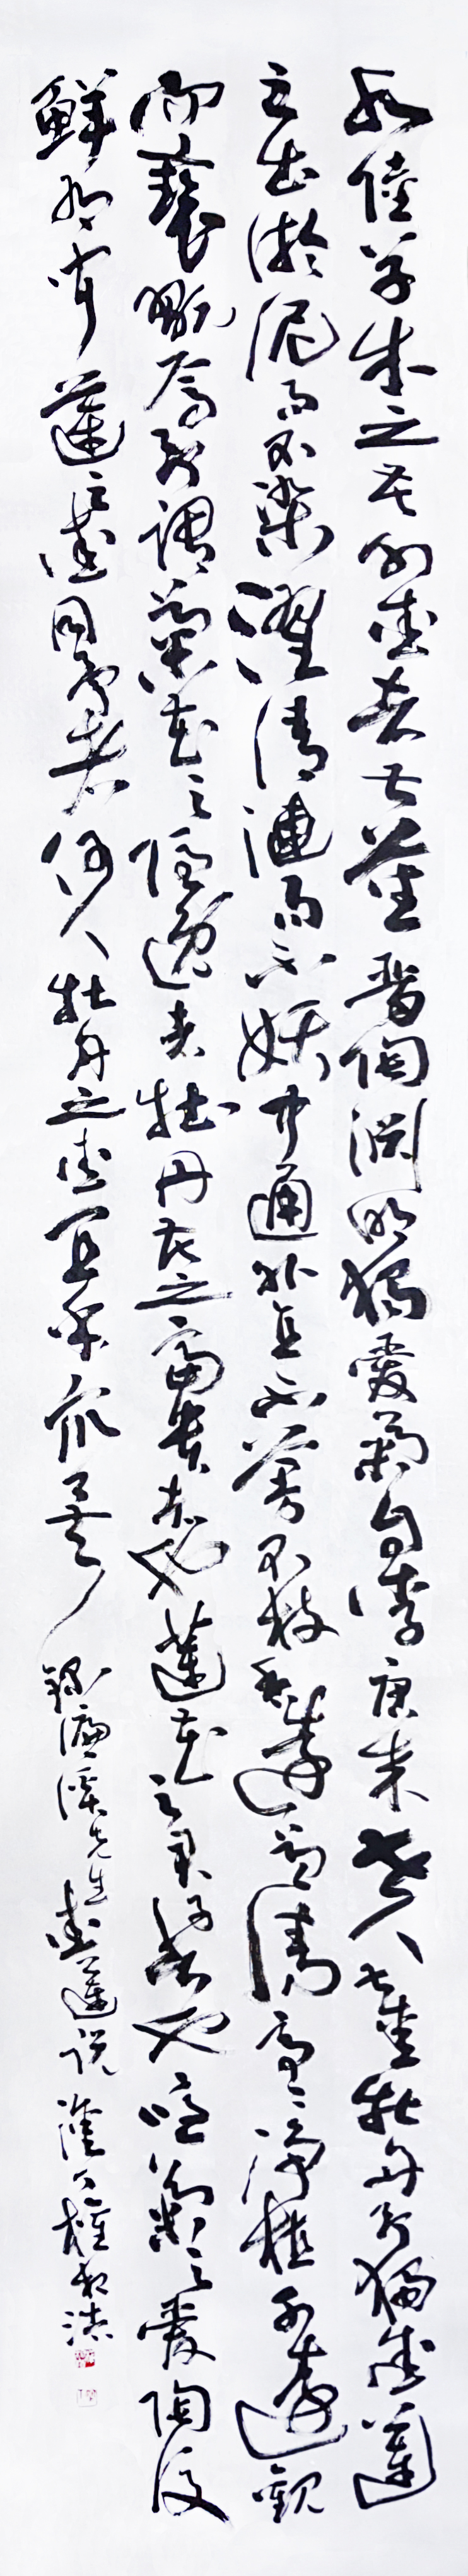 水陸草木之花可愛者甚蕃晉陶淵明獨愛菊自李唐來世人甚愛牡丹予獨愛蓮
之出淤泥而不染濯清漣而不妖中通外直不蔓不枝香遠益清亭亭淨植可遠觀
褻翫焉予謂菊花之隱逸者牡丹花之富貴者也蓮花之君子者也噫菊之愛陶後
鮮有聞蓮之愛同予者何人牡丹之愛宜乎衆矣 錄濂溪先生愛蓮說